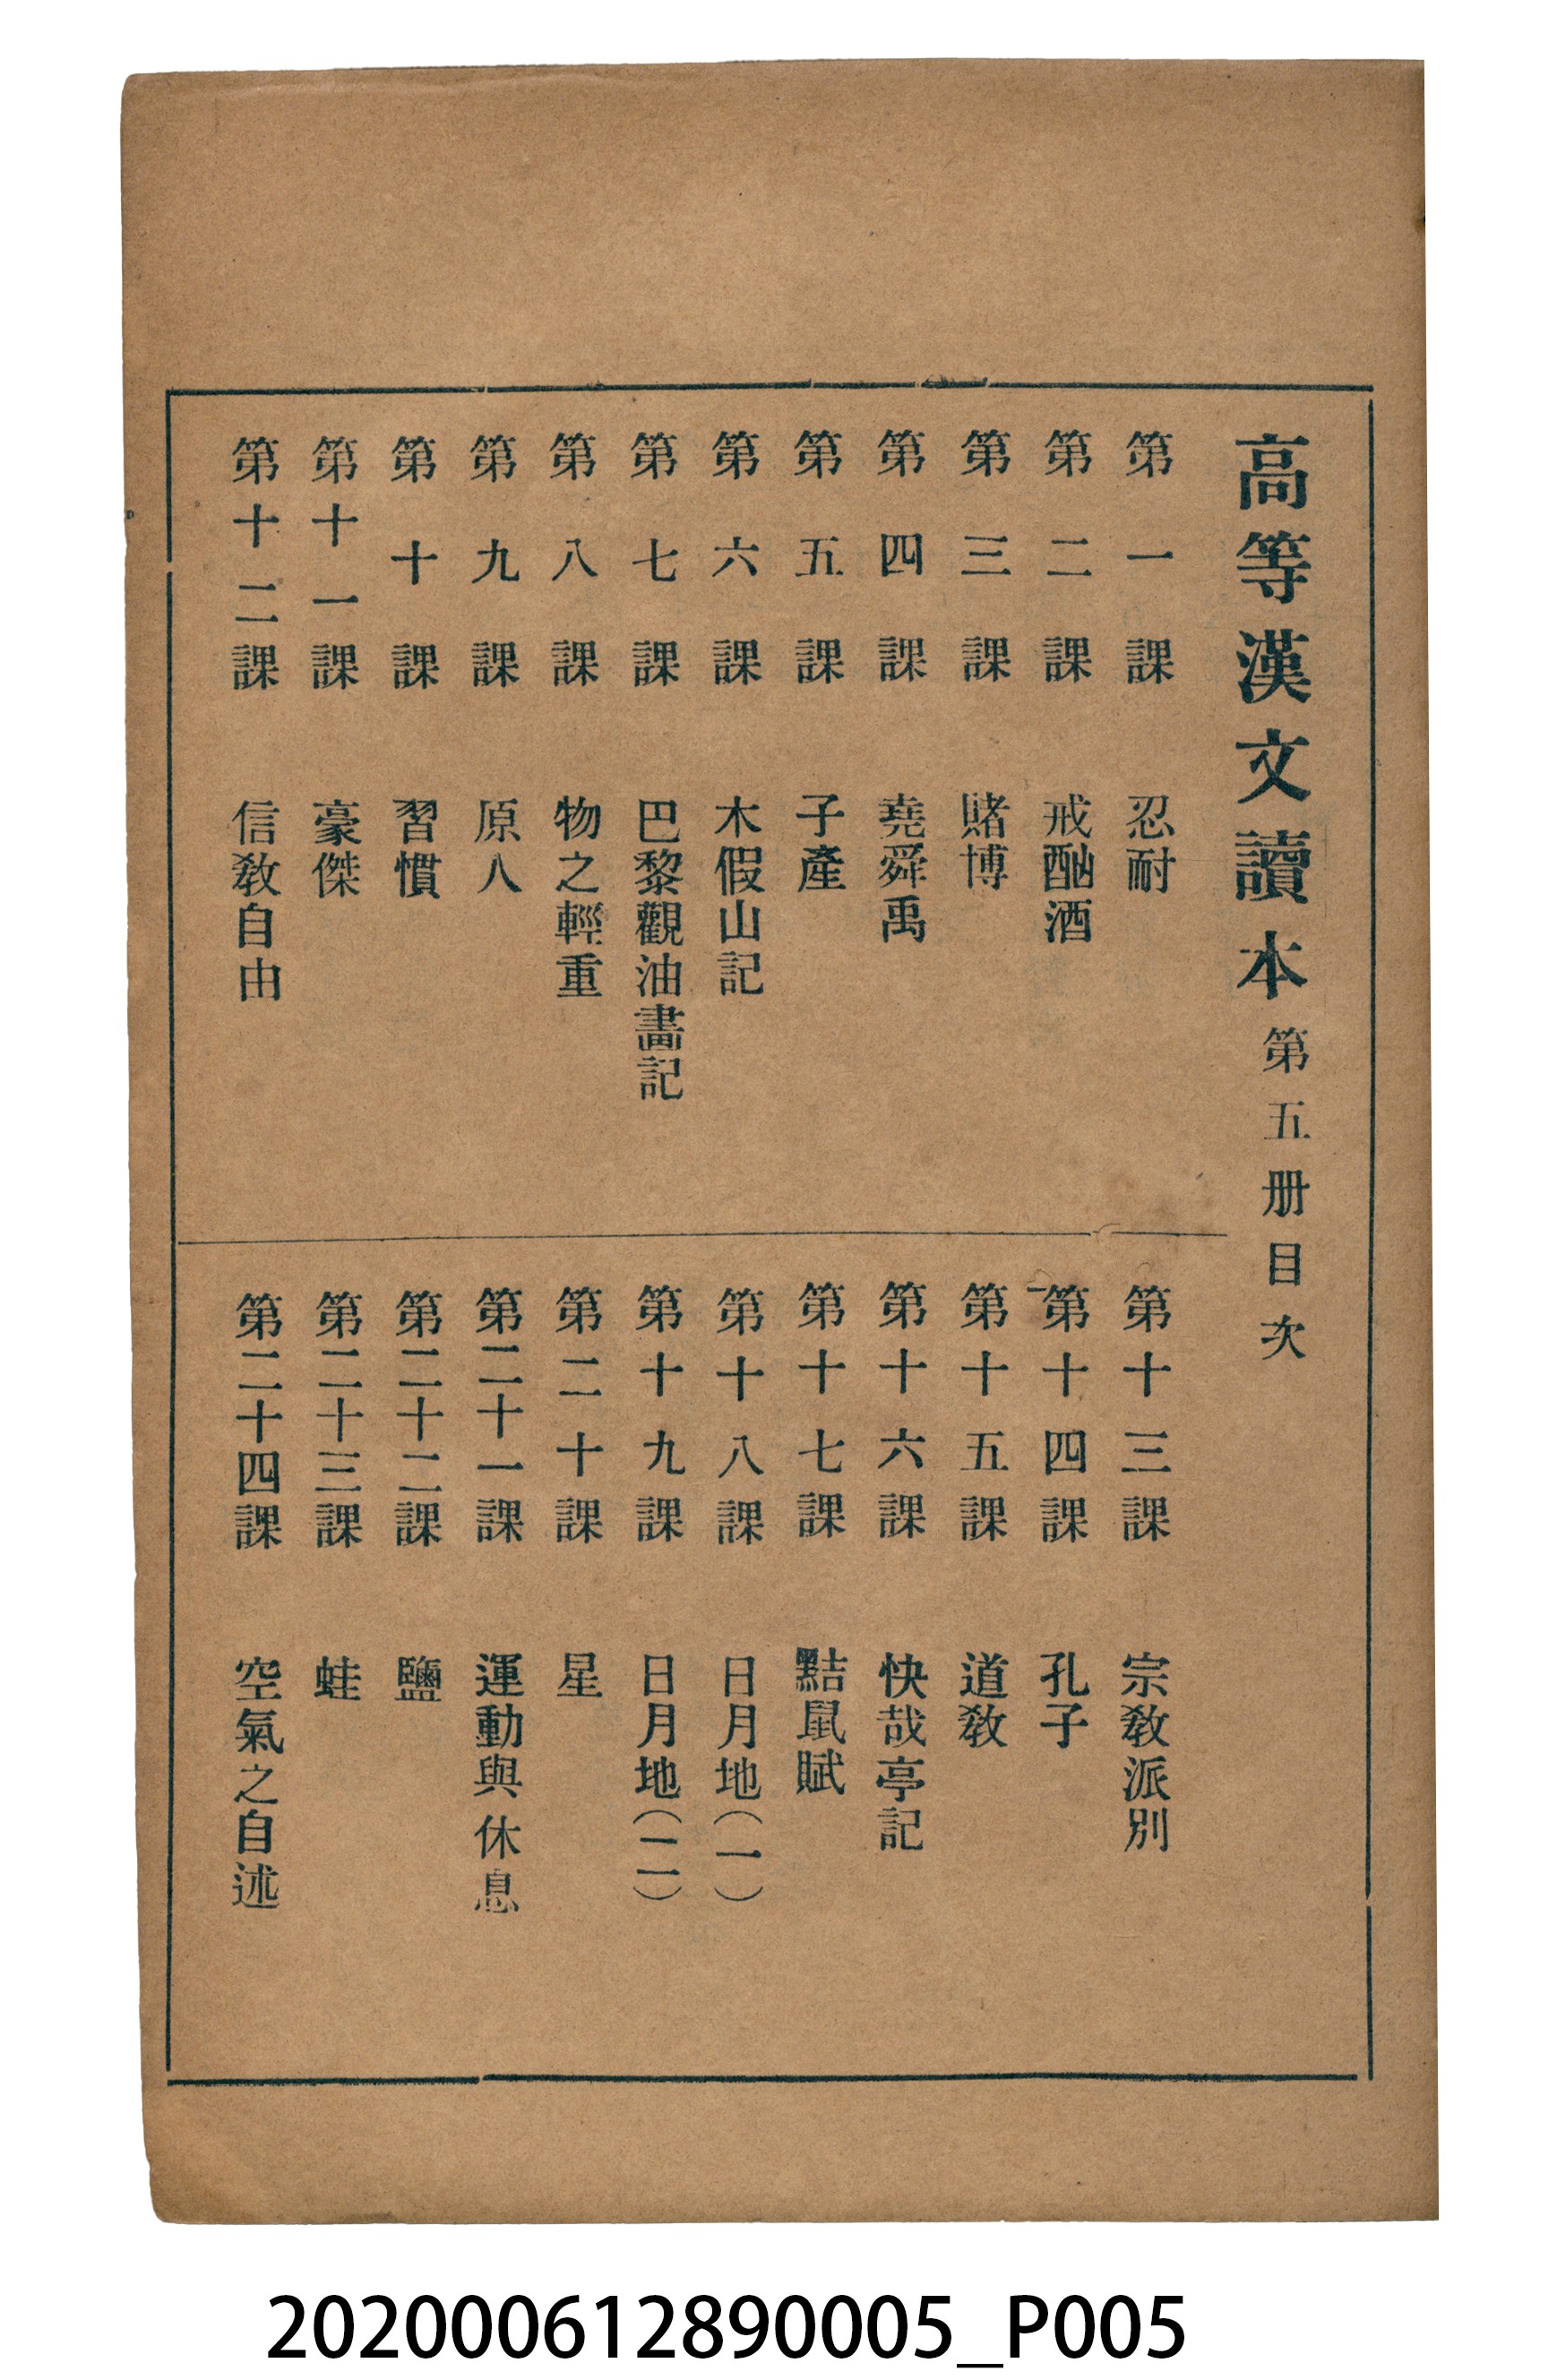 高等漢文讀本第五册目次
第一課 忍耐
第二課 戒酗酒
第三課 賭博
第四課 堯舜禹
第五課 子產
第六課 木假山記
第七課 巴黎觀油畵記
第八課 物之輕重
第九課 原人
第十課 習慣
第十一課 豪傑
第十二課 信敎自由
第十三課 宗敎派別
第十四課 孔子
第十五課 道敎
第十六課 快哉亭記
第十七課 黠鼠賦
第十八課 日月地(一)
第十九課 日月地(二)
第二十課 星
第二十一課 運動與休息
第二十二課 鹽
第二十三課 蛙
第二十四課 空氣之自述
202000612890005_P005